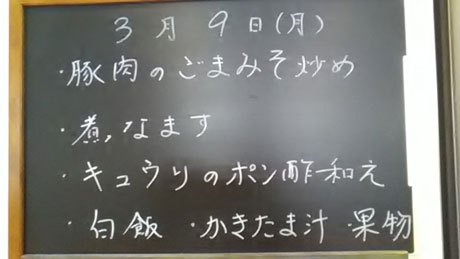 3月9日(月)
・豚肉のごまみそ炒め
・煮なます
・キュウリのポン酢和え
・白飯 ・かきたま汁 ・果物